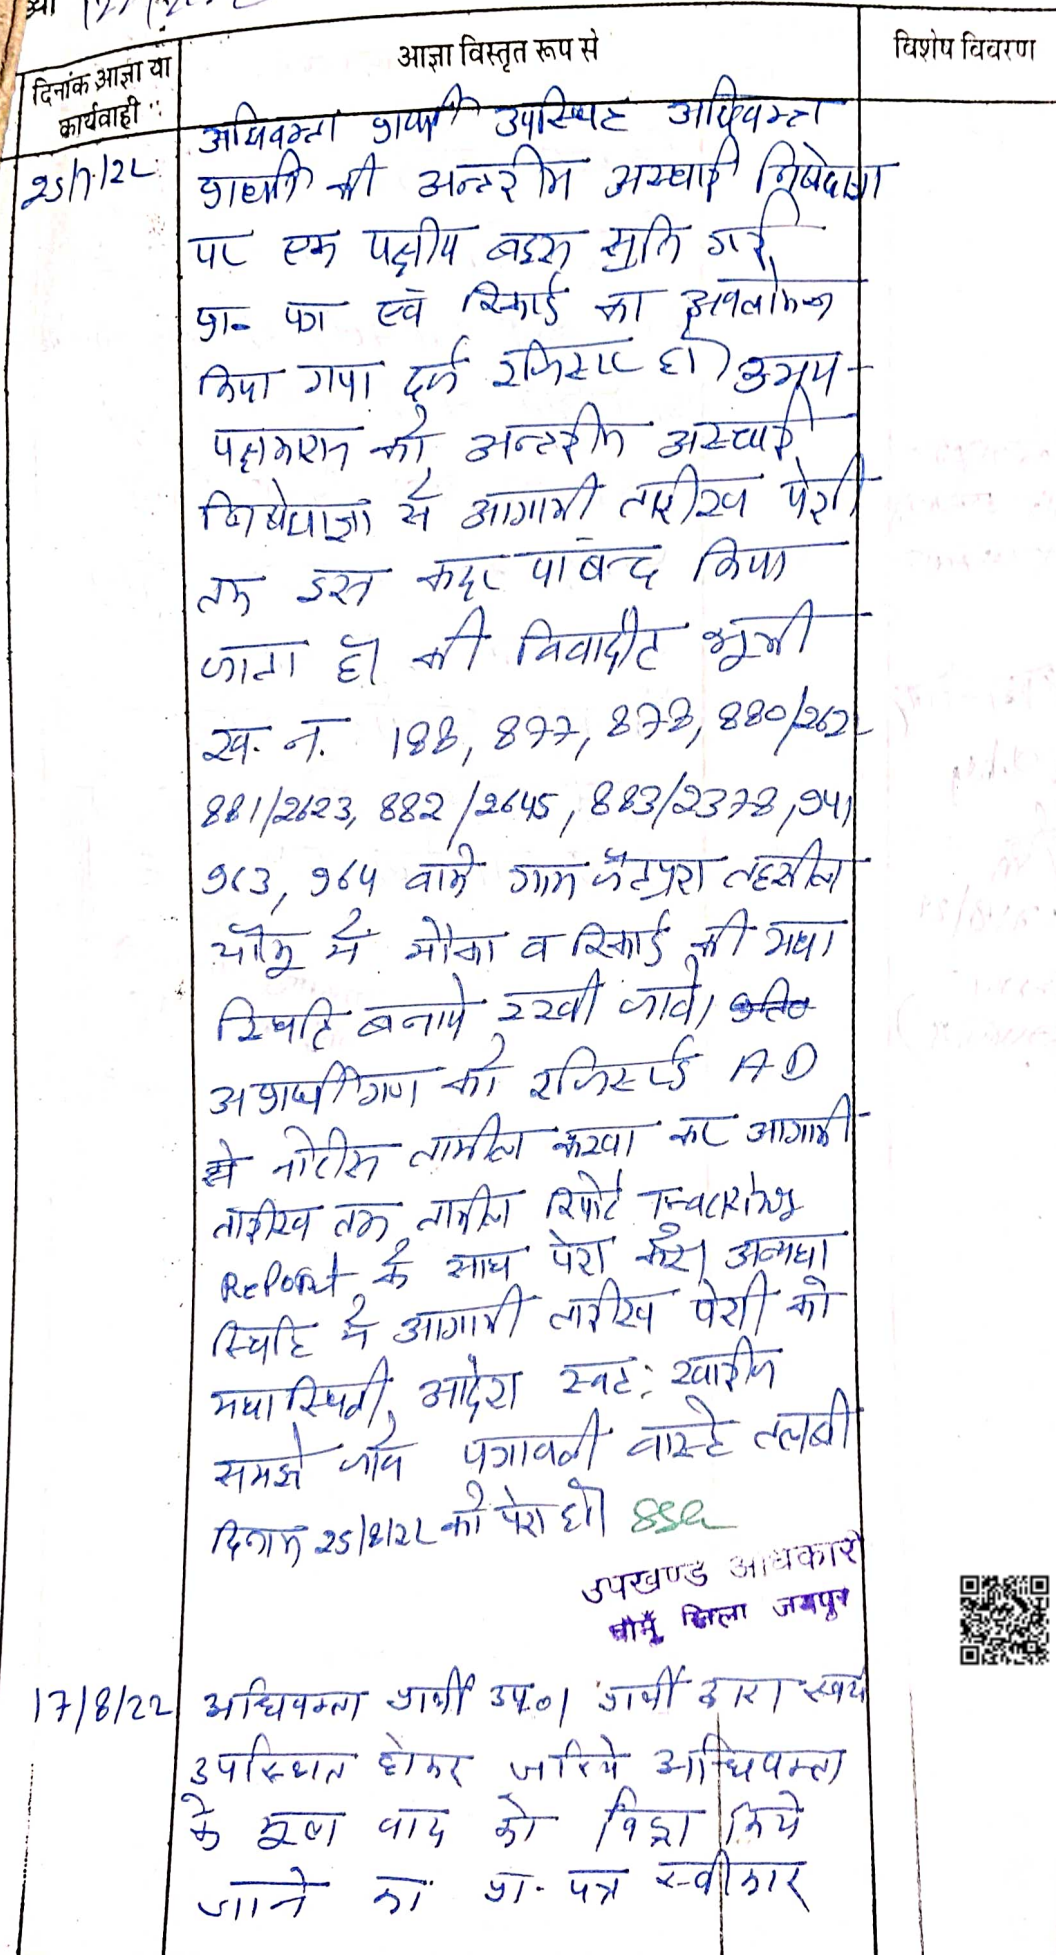 दिनांक आज्ञा या
कार्यवाही
आज्ञा विस्तृत रूप से
विशेष विवरण
25/7/22
अधिवक्ता प्रार्थी उपस्थित अधिवक्ता
प्रार्थी की अन्तरीम अस्थाई निषेधाज्ञा
पर एक पक्षीय बहस सुनि गई
प्रा. पत्र एवं रिकार्ड का अवलोकन
किया गया दर्ज रजिस्टर हो। उभय
पक्षकारान को अन्तरीम अस्थाई
निषेधाज्ञा से आगामी तारीख पेशी
तक इस कदर पाबंन्द किया
जाता है की विवादीत भूमी
ख. न. 188, 877, 878, 880/2622
881/2623, 882/2645, 883/2378, 941
963, 964 वाके ग्राम जैतपुरा तहसील
चौमू में मौका व रिकार्ड की यथा
स्थिति बनाये रखी जावे।
अप्रार्थीगण को रजिस्टर्ड A D
से नोटीस तामील करवा कर आगामी
तारीख तक तामील रिपोर्ट
Report के साथ पेश करे। अन्यथा
स्थिति में आगामी तारीख पेशी को
यथास्थिती आदेश स्वत: खारीज
समझे जावे पत्रावली वास्ते तलबी
दिनांक 25/8/22 को पेश हो।
उपखण्ड अधिकारी
चौमूँ जिला जयपुर
17/8/22
अधिवक्ता प्रार्थी उप०। प्रार्थी द्वारा स्वयं
उपस्थित होकर जरिये अधिवक्ता
के मूल वाद को विड्रा किये
जाने का प्रा. पत्र स्वीकार